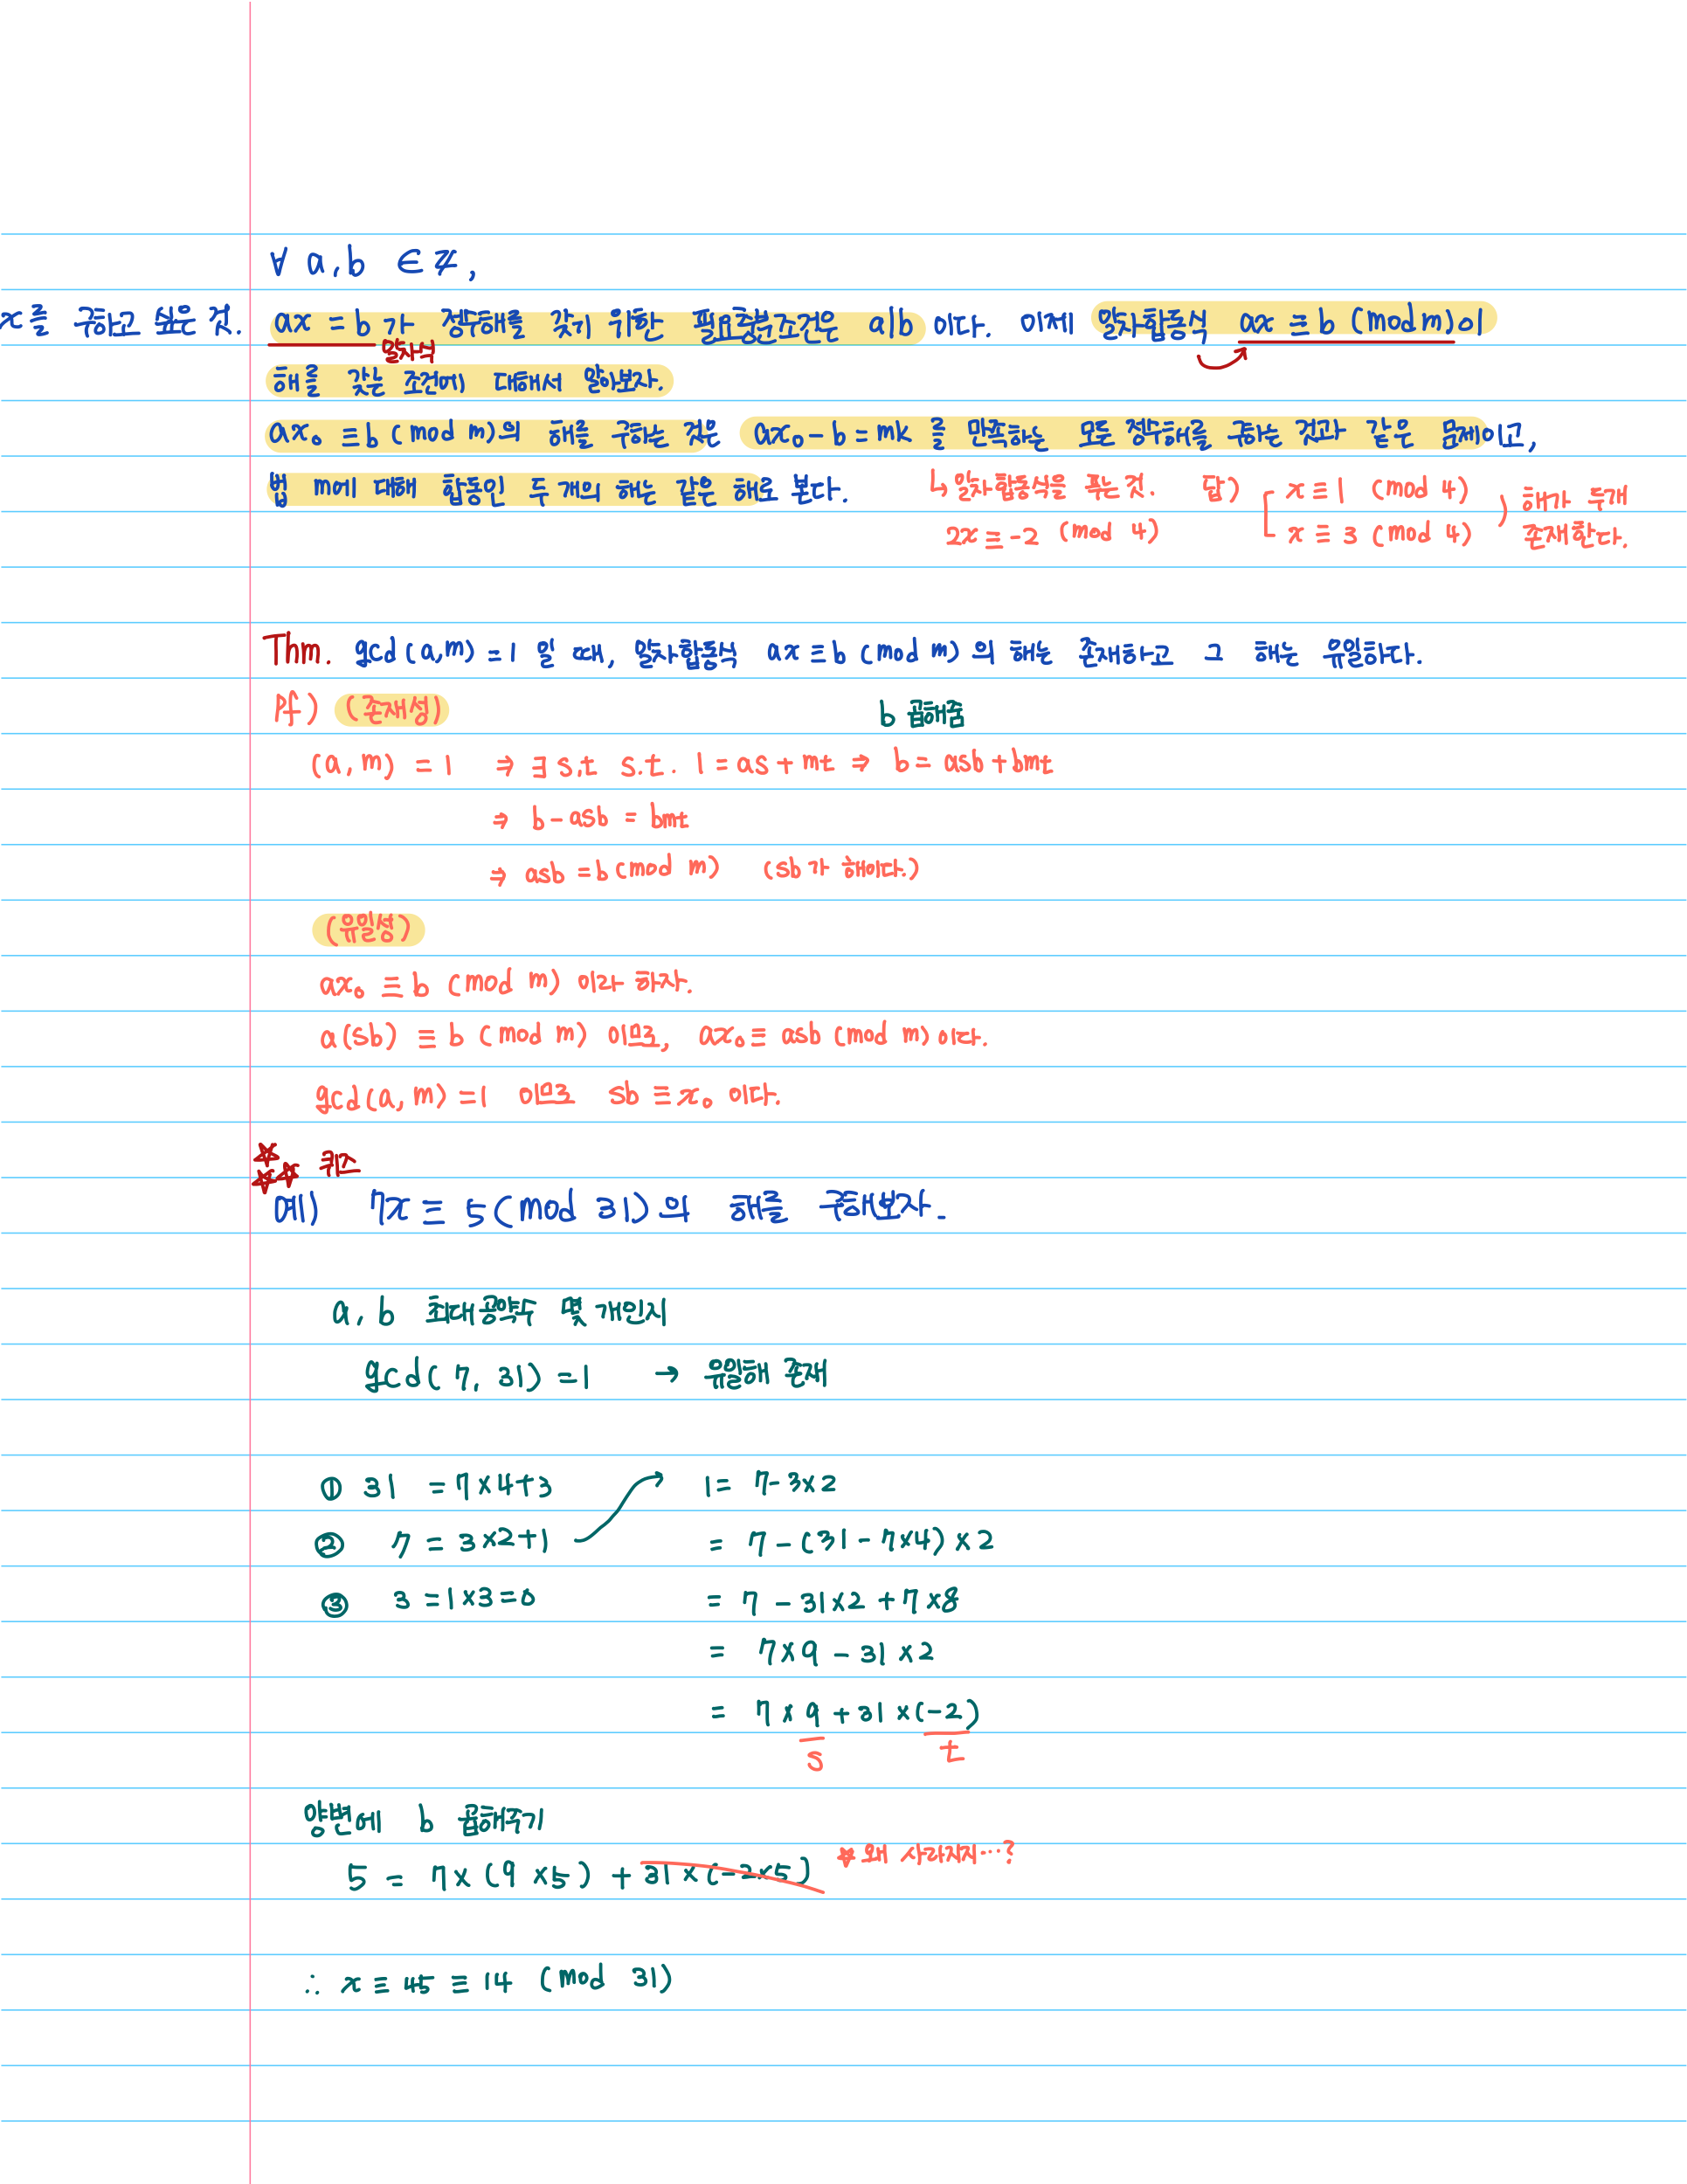 ∀ a, b ∈ ℤ,
x를 구하고 싶은 것. ax = b 가 정수해를 갖기 위한 필요충분조건은 a|b 이다. 이제 일차합동식 ax ≡ b (mod m)이
일차식
해를 갖는 조건에 대해서 알아보자.
ax₀ ≡ b (mod m)의 해를 구하는 것은 ax₀ - b = mk 를 만족하는 모든 정수해를 구하는 것과 같은 문제이고,
법 m에 대해 합동인 두 개의 해는 같은 해로 본다. ↳ 일차합동식을 푸는 것. 답) x ≡ 1 (mod 4) 해가 두개
2x ≡ -2 (mod 4) x ≡ 3 (mod 4) 존재한다.
Thm. gcd(a,m) = 1 일 때, 일차합동식 ax ≡ b (mod m)의 해는 존재하고 그 해는 유일하다.
Pf) (존재성) b 곱해줌
(a, m) = 1 ⇒ ∃ s,t s.t. 1 = as + mt ⇒ b = asb + bmt
⇒ b - asb = bmt
⇒ asb = b (mod m) (sb가 해이다.)
(유일성)
ax₀ ≡ b (mod m) 이라 하자.
a(sb) ≡ b (mod m) 이므로, ax₀ ≡ asb (mod m) 이다.
gcd(a, m) = 1 이므로 sb ≡ x₀ 이다.
☆☆☆ 퀴즈
예) 7x ≡ 5 (mod 31)의 해를 구해보자.
a, b 최대공약수 몇 개인지
gcd(7, 31) = 1 → 유일해 존재
① 31 = 7×4+3 1 = 7-3×2
② 7 = 3×2+1 = 7 - (31 - 7×4) × 2
③ 3 = 1×3=0 = 7 - 31×2 + 7×8
= 7×9 - 31×2
= 7×9 + 31×(-2)
s t
양변에 b 곱해주기
5 = 7×(9×5) + 31×(-2×5) ☆ 왜 사라지지…?
∴ x ≡ 45 ≡ 14 (mod 31)